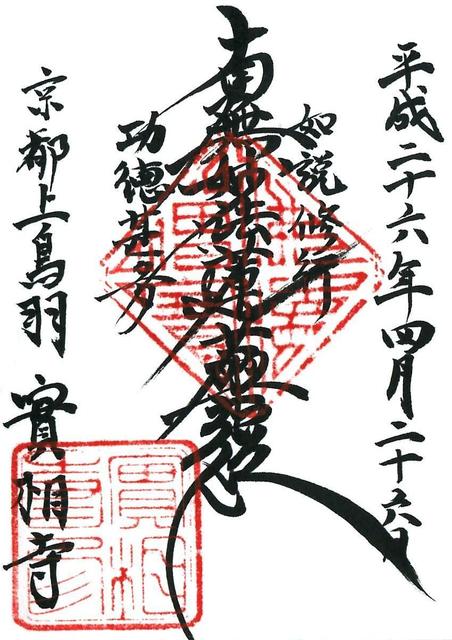 平成二十六年四月二十六日
如説修行
南無妙法蓮華経
功徳甚多
京都上鳥羽
實相寺